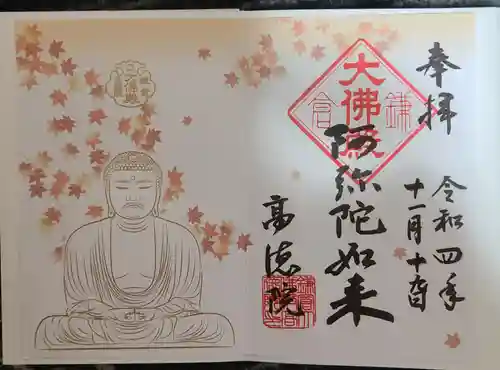 奉拝
令和四年
十一月十八日
鎌倉
大佛殿
阿弥陀如来
高徳院